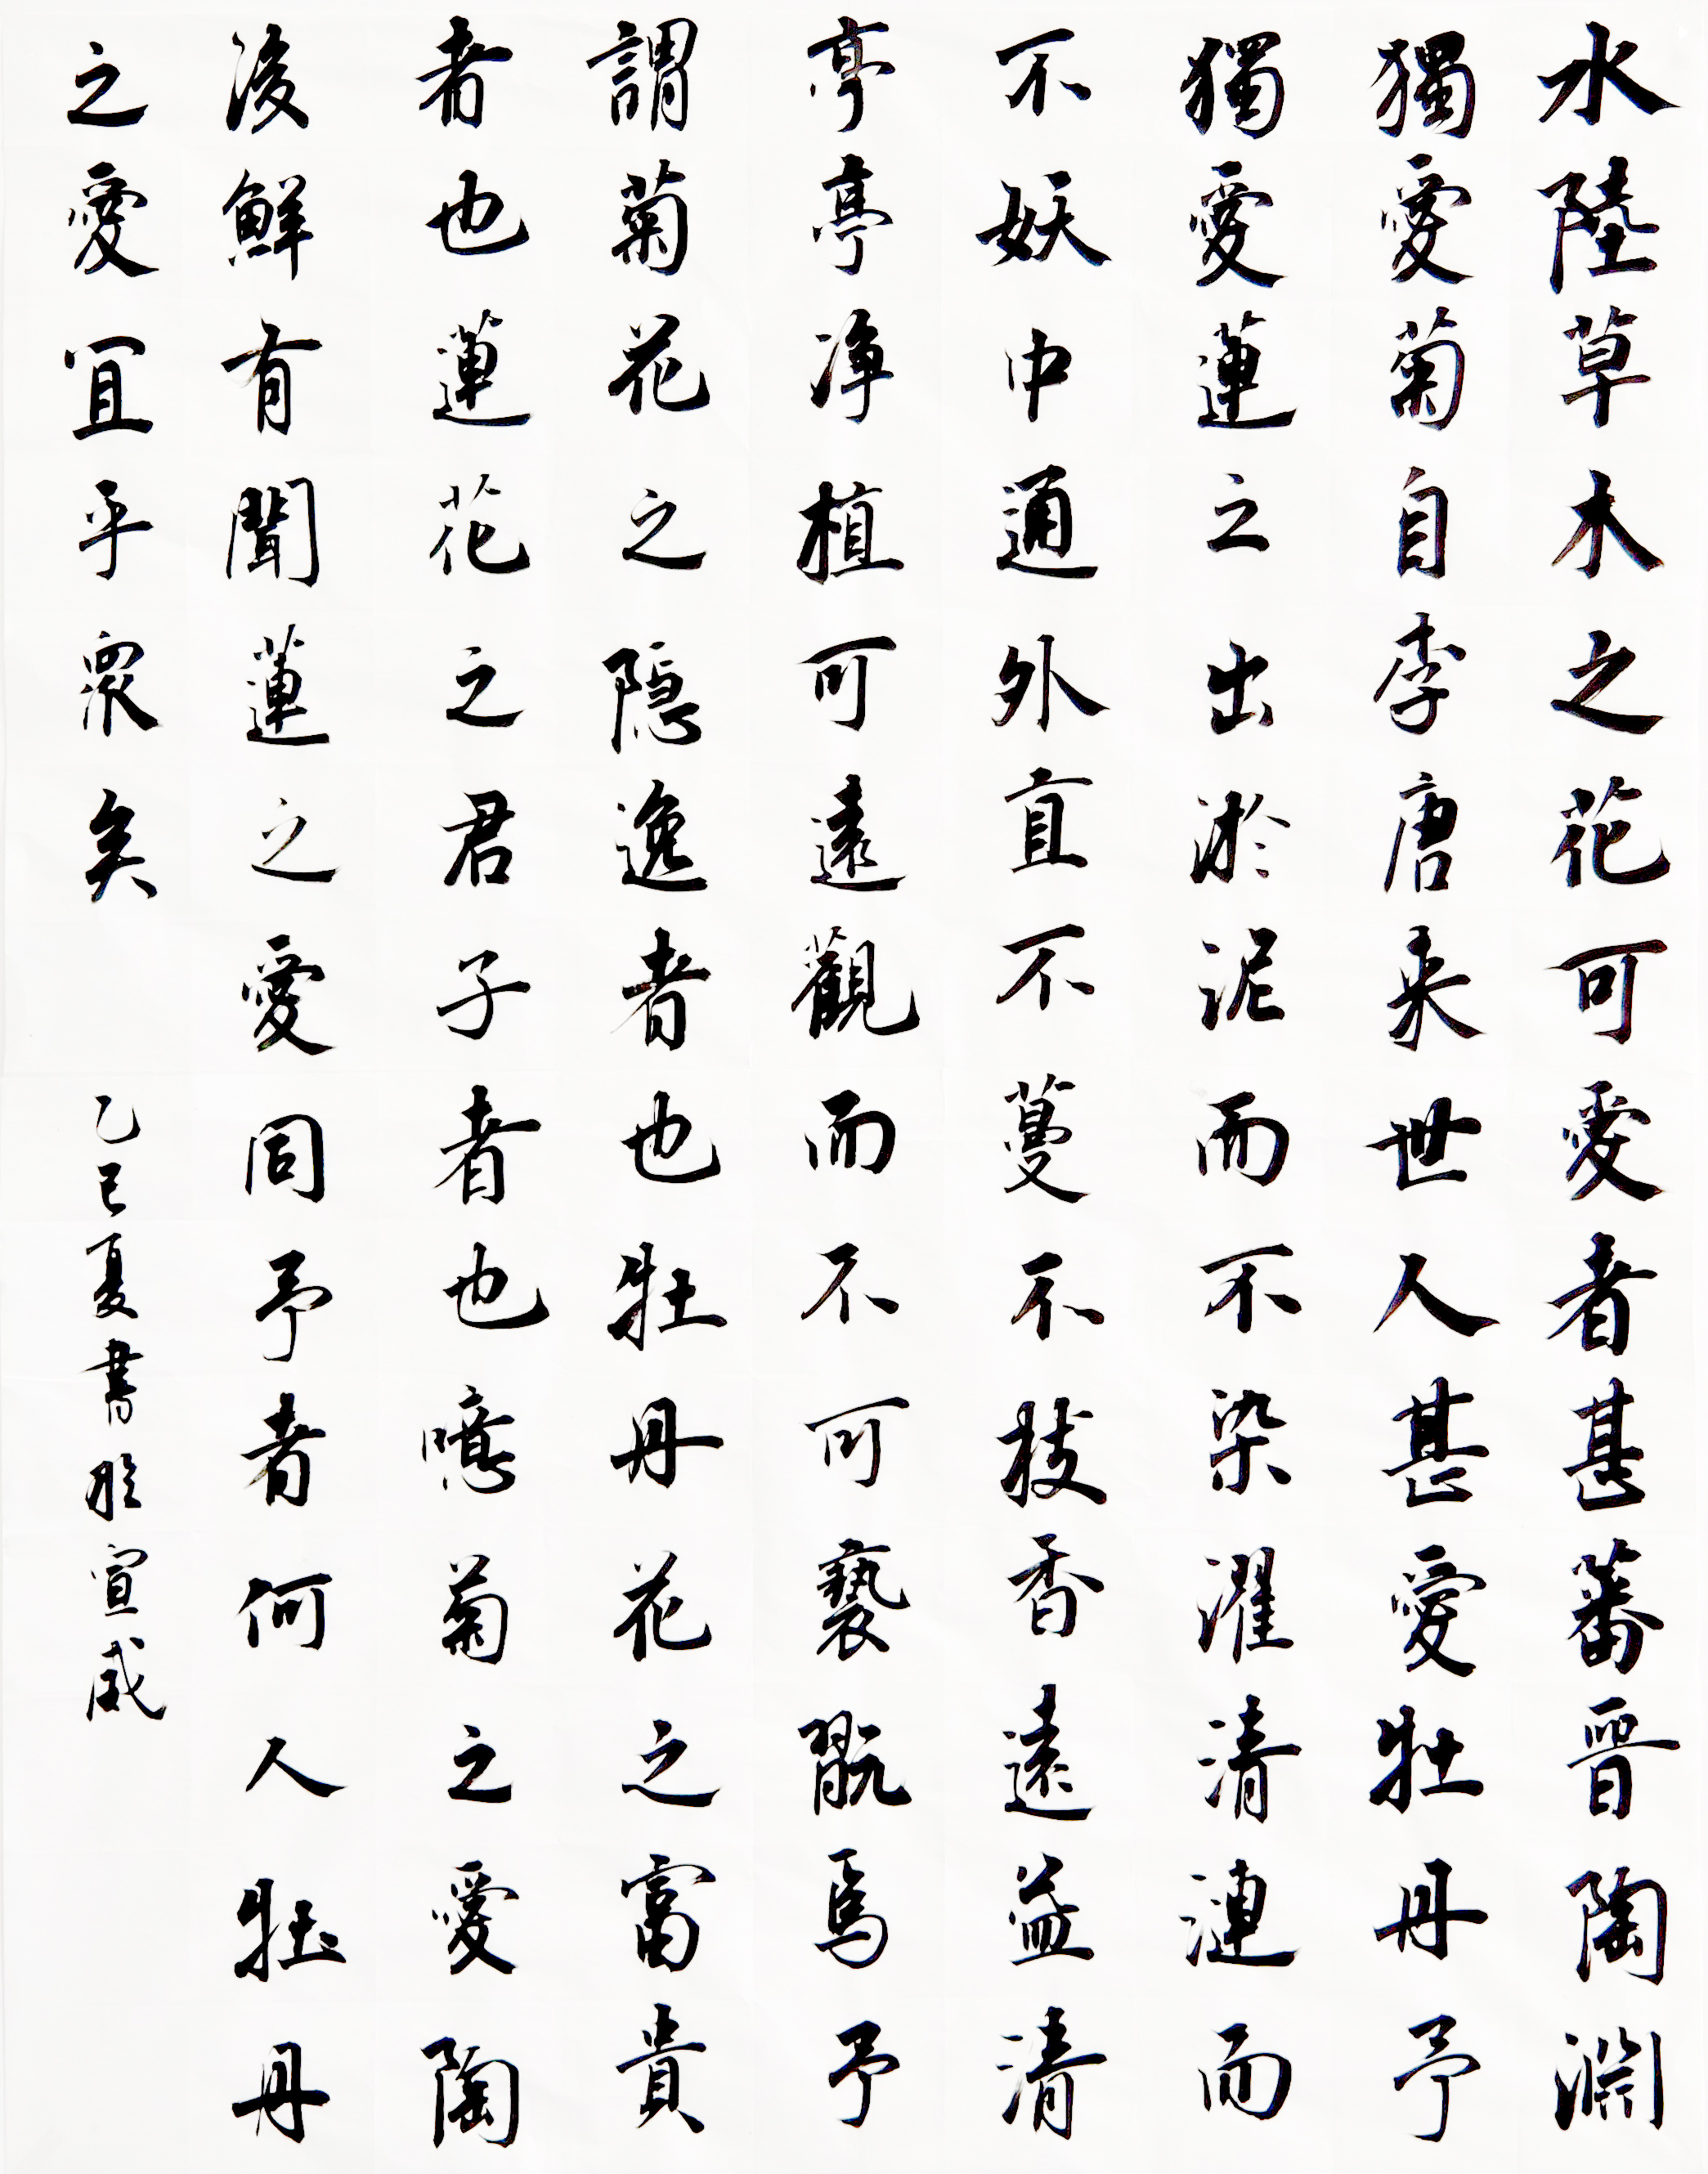 水陸草木之花可愛者甚蕃晉陶淵
獨愛菊自李唐来世人甚愛牡丹予
獨愛蓮之出淤泥而不染濯清漣而
不妖中通外直不蔓不枝香遠益清
亭亭净植可遠觀而不可褻翫焉予
謂菊花之隱逸者也牡丹花之富貴
者也蓮花之君子者也噫菊之愛陶
後鮮有聞蓮之愛同予者何人牡丹
之愛宜乎眾矣
乙巳夏書於宣威